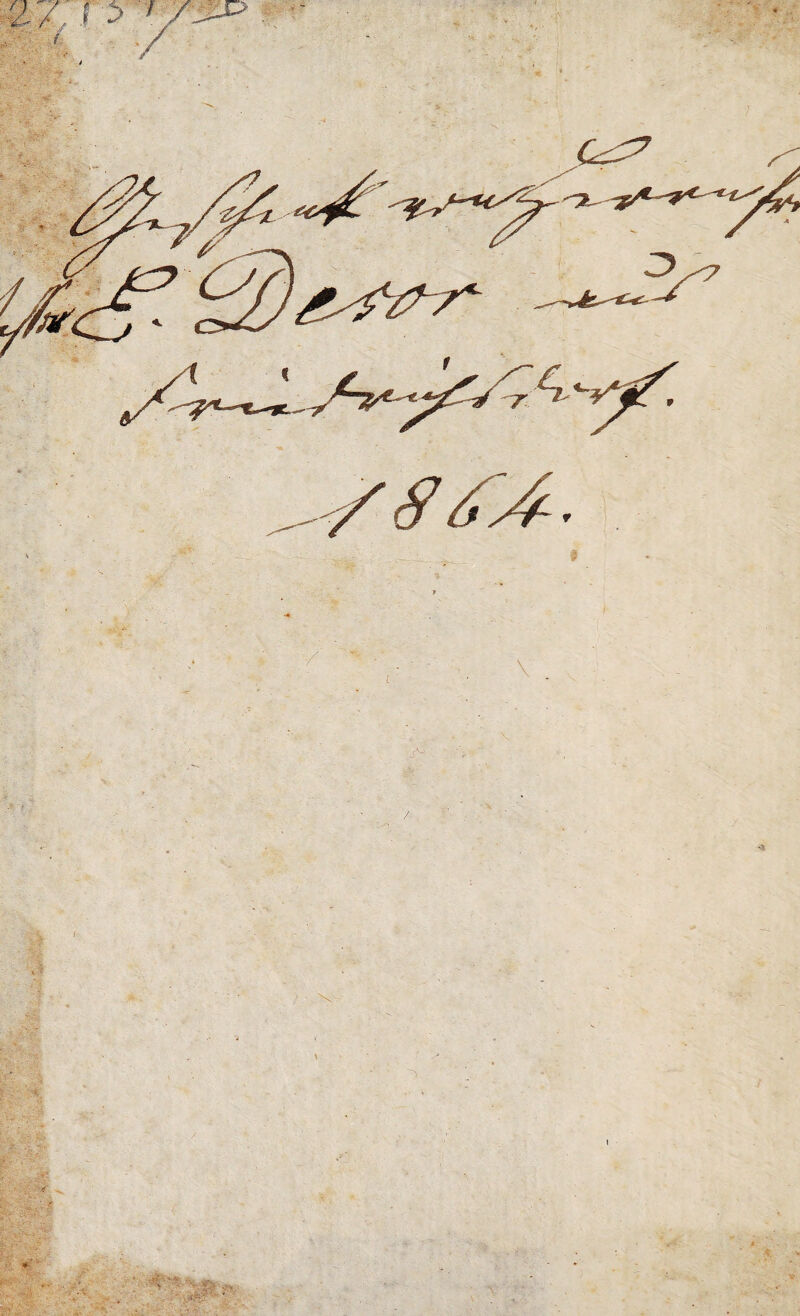 27,131/B
Geschenk von Herrn Pro
fessor E. Desor aus
Friedrichsdorf.
1864.